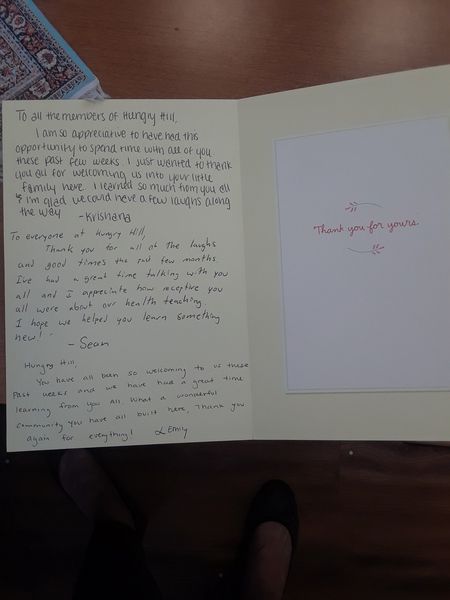 To all the members of Hungry Hill,
I am so appreciative to have had this
opportunity to spend time with all of you
these past few weeks. I just wanted to thank
you all for welcoming us into your little
family here. I learned so much from you all
& I'm glad we could have a few laughs along
the way -Krishana
To everyone at Hungry Hill,
Thank you for all of the laughs
and good times the past few months.
I've had a great time talking with you
all and I appreciate how receptive you
all were about our health teaching.
I hope we helped you learn something
new!
- Sean
Hungry Hill,
You have all been so welcoming to us these
past weeks and we have had a great time
learning from you all. What a wonderful
community you have all built here, Thank you
again for everything! Emily
Thank you for yours.